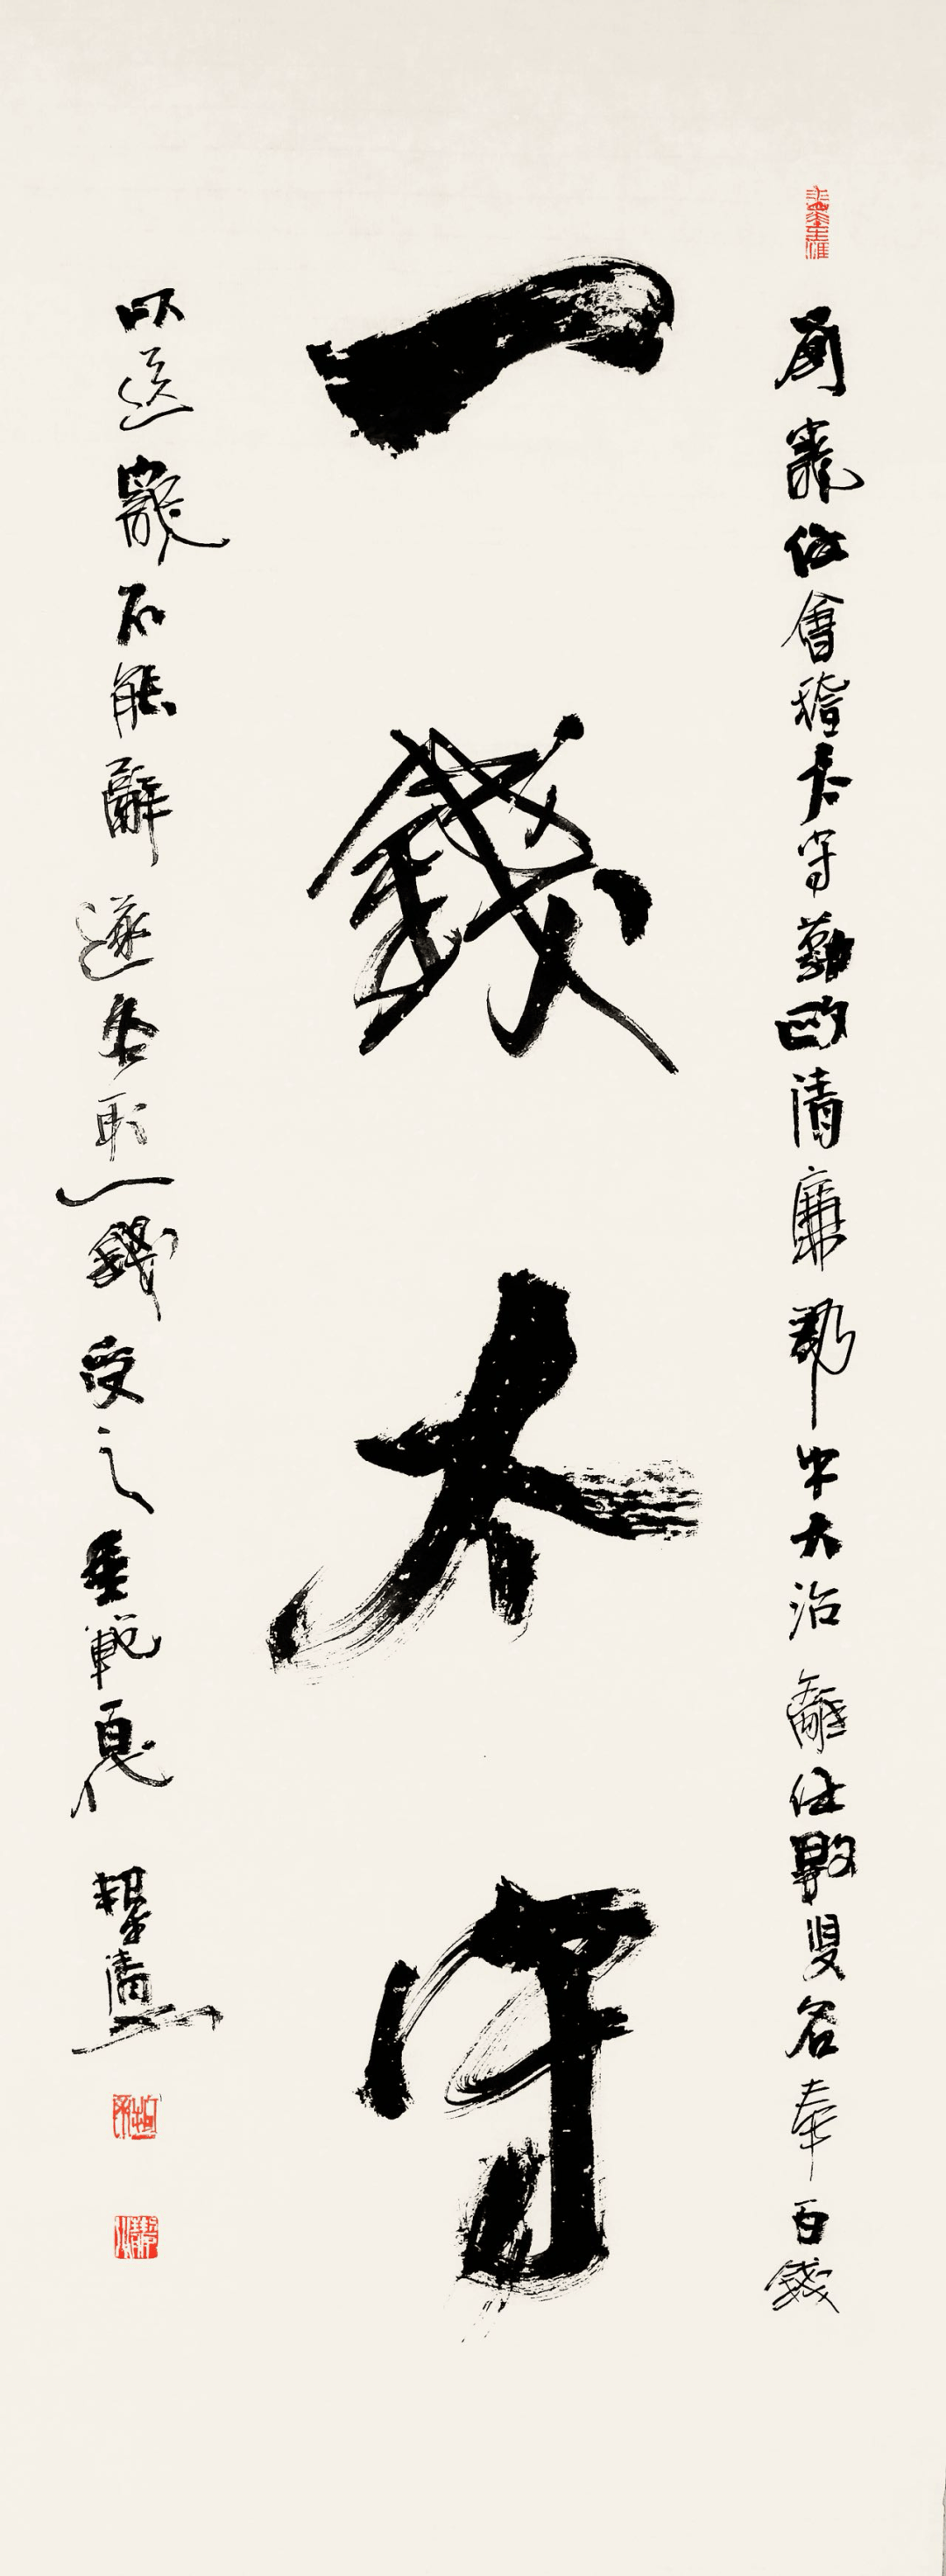 劉寵任會稽太守勤政清廉郡中大治離任數叟各奉百錢
一錢太守
以送寵不能辭遂各取一錢受之垂範百代